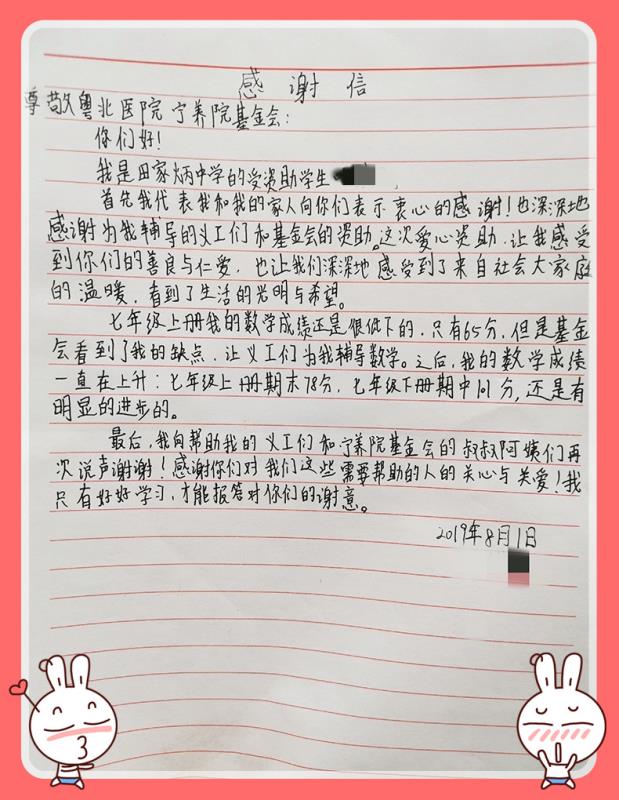 感谢信
尊敬粤北医院宁养院基金会：
你们好！
我是田家炳中学的受资助学生
首先我代表我和我的家人向你们表示衷心的感谢！也深深地
感谢为我辅导的义工们和基金会的资助。这次爱心资助，让我感受
到你们的善良与仁爱，也让我们深深地感受到了来自社会大家庭
的温暖，看到了生活的光明与希望。
七年级上册我的数学成绩还是很低下的，只有65分，但是基金
会看到了我的缺点，让义工们为我辅导数学。之后，我的数学成绩
一直在上升：七年级上册期末78分，七年级下册期中101分，还是有
明显的进步的。
最后，我向帮助我的义工们和宁养院基金会的叔叔阿姨们再
次说声谢谢！感谢你们对我们这些需要帮助的人的关心与关爱！我
只有好好学习，才能报答对你们的谢意。
2019年8月1日